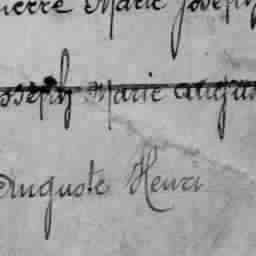 Pierre Marie Joseph
Joseph Marie Augus
Auguste Henri